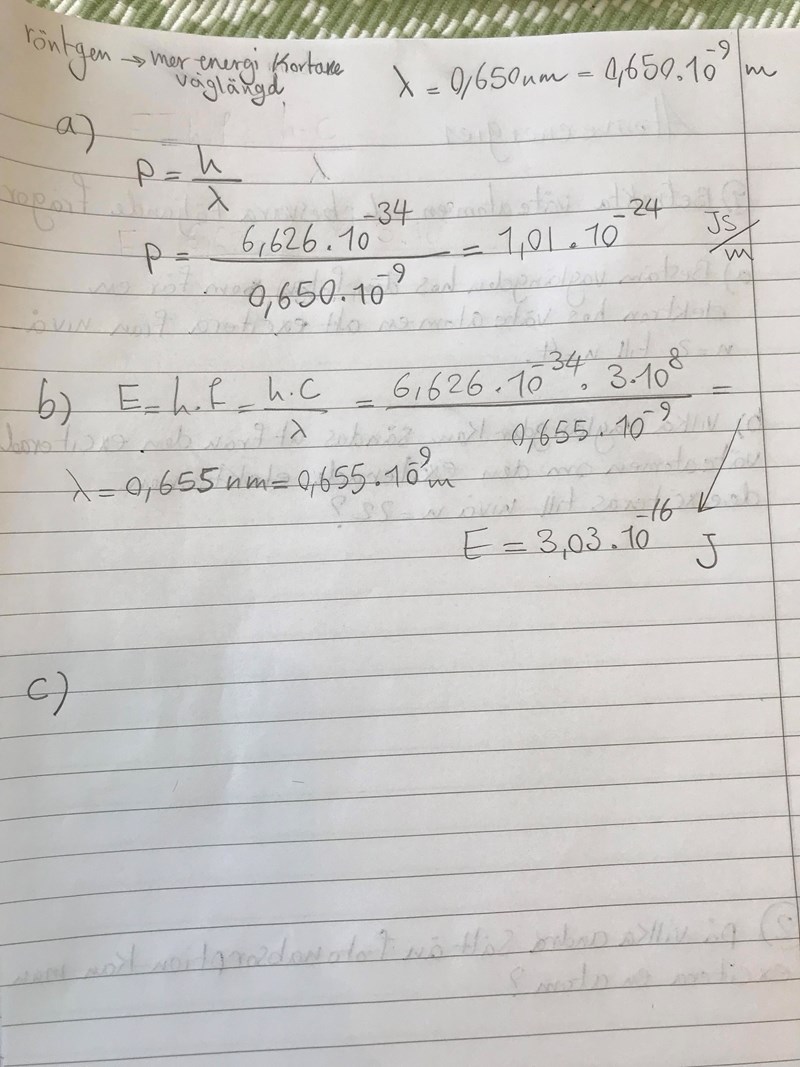 röntgen → mer energi Kortare
våglängd.
λ = 0,650 nm = 0,650·10⁻⁹ m
a)
P = h/λ
λ
P = 6,626·10⁻³⁴ / 0,650·10⁻⁹ = 1,01·10⁻²⁴ JS/m
b) E = h.f = h.C/λ = 6,626·10⁻³⁴ · 3·10⁸ / 0,655·10⁻⁹ =
λ = 0,655 nm = 0,655·10⁻⁹ m
E = 3,03·10⁻¹⁶ J
c)